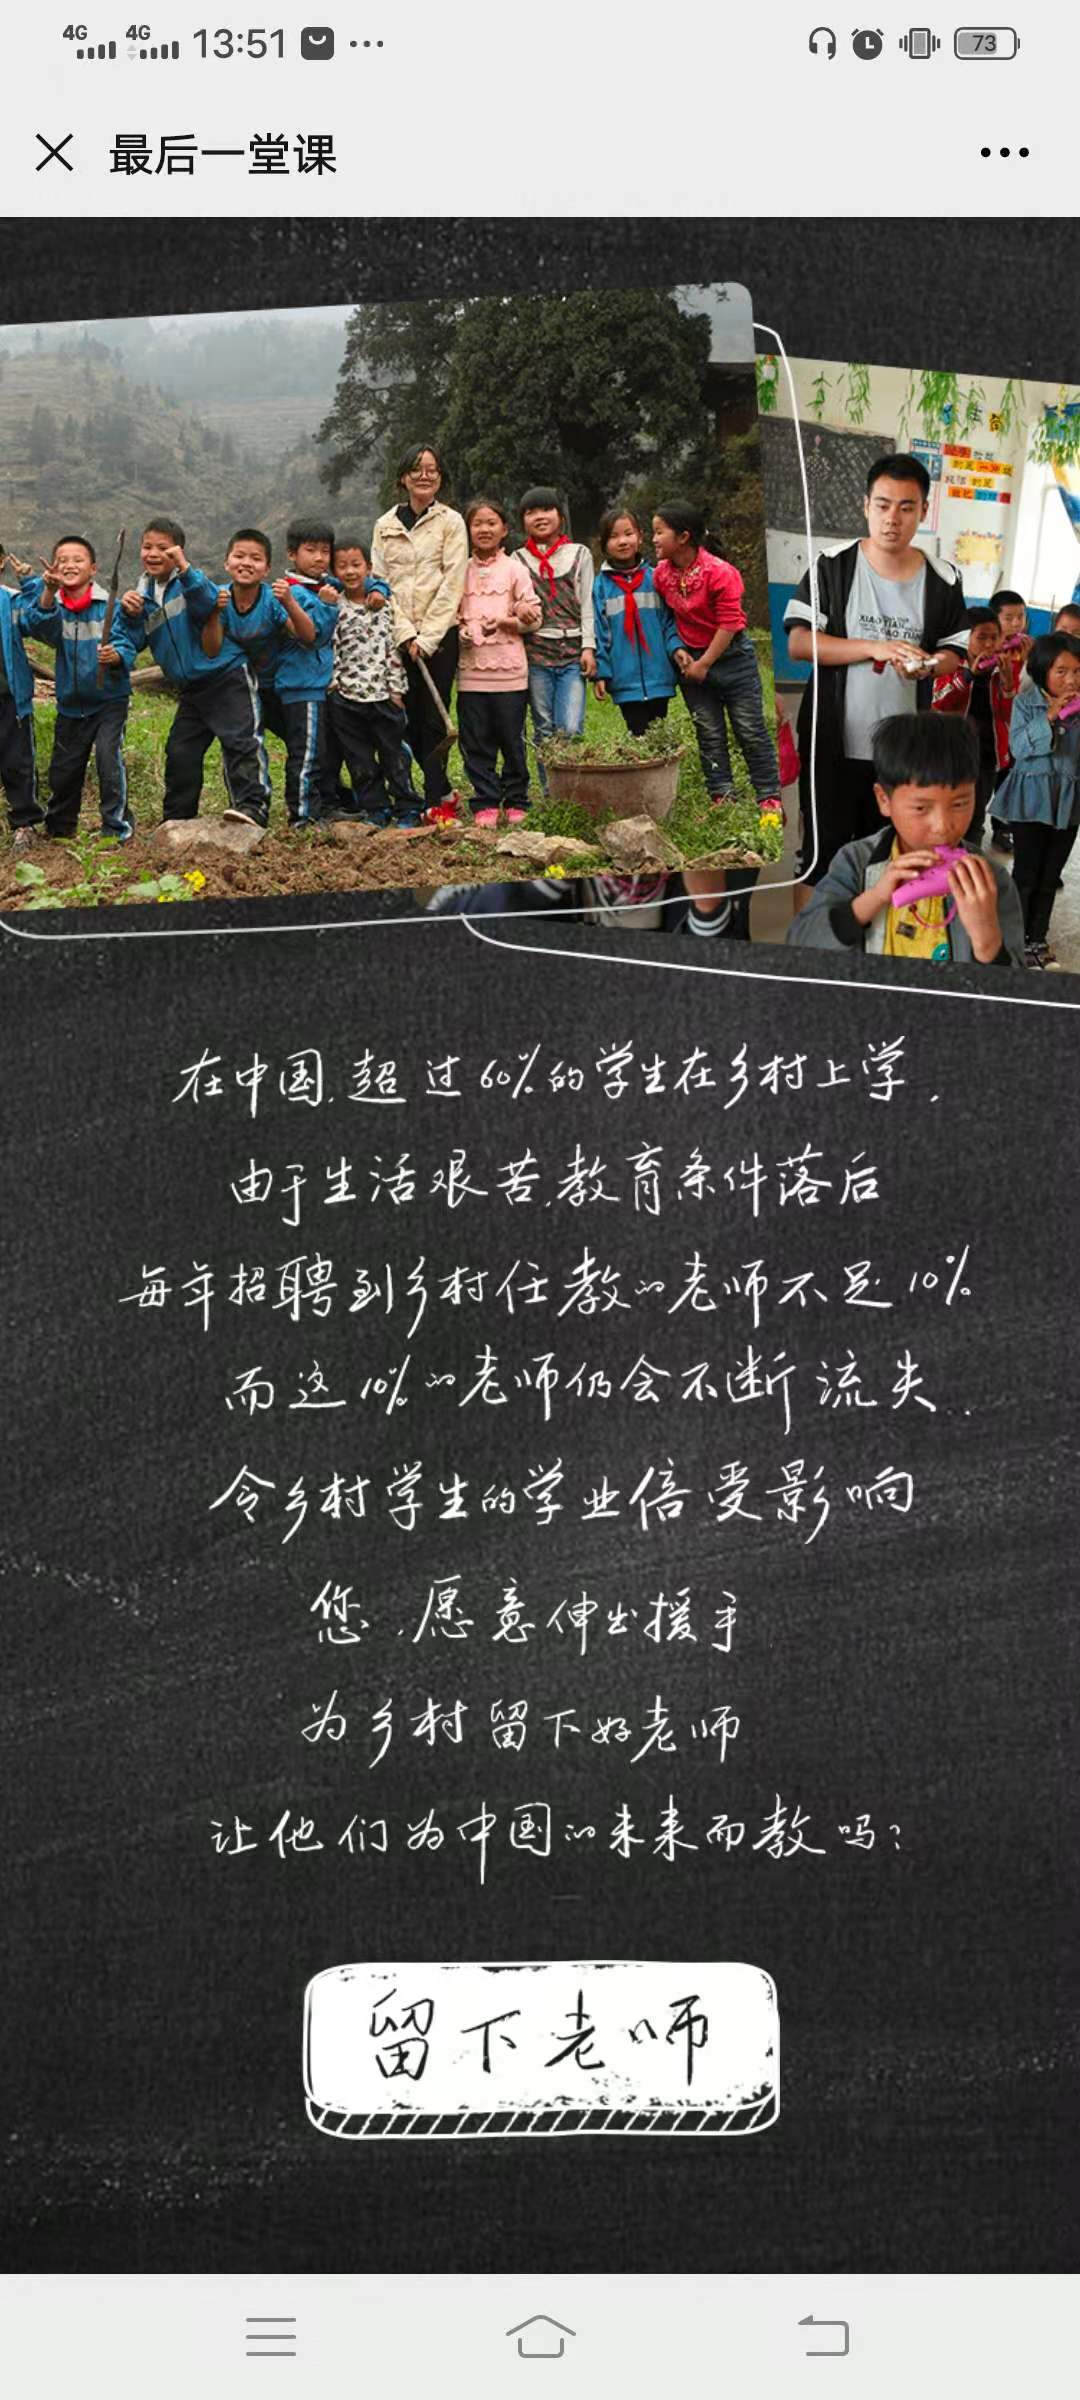 4G 4G 13:51 73
最后一堂课
XIAO
在中国,超过60%的学生在乡村上学,
由于生活艰苦,教育条件落后
每年招聘到乡村任教的老师不足10%
而这10%的老师仍会不断流失..
令乡村学生的学业倍受影响
您,愿意伸出援手
为乡村留下好老师
让他们为中国的未来而教吗?
留下老师